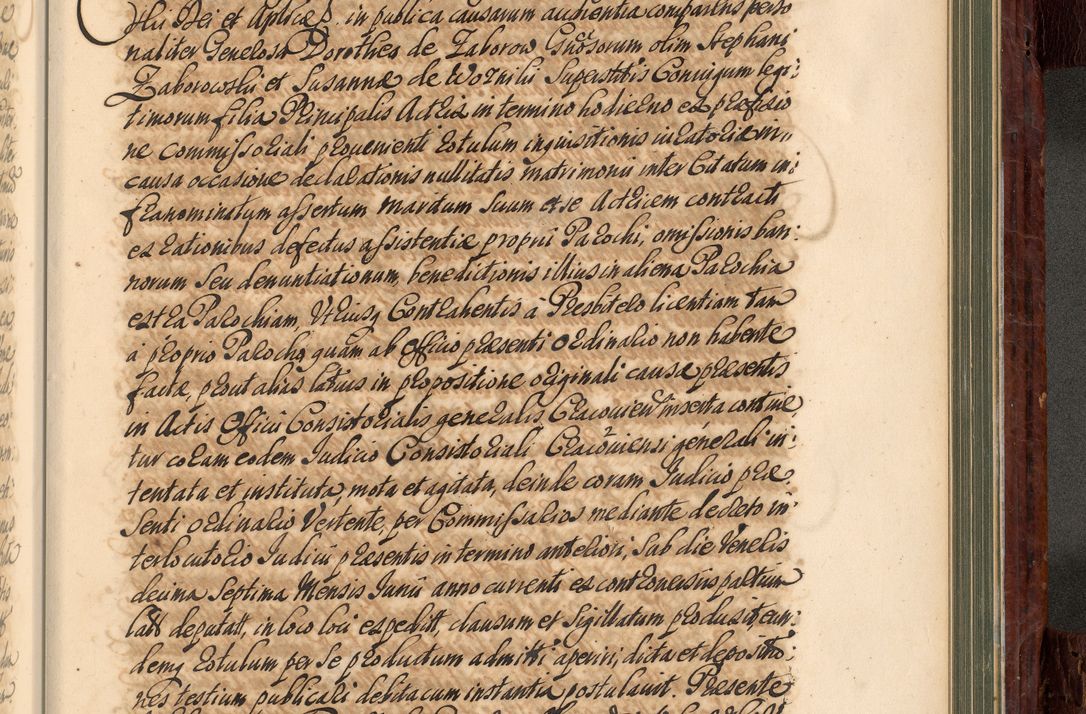 illi Dei et Aplicæ S. in publica causarum audientia comparens perso
naliter Generosa Dorothea de Zaborow Gnosorum olim Stephani
Zaborowski et Susannæ de Woznihi Superstitis Coniugum legi:
timorum filia Principalis Actrix in termino hodierno ex præfixio
ne commissoriali provenienti Rotulum inquisitionis iuratoriæ in,,
causa occasione declarationis nullitatis matrimonii inter Citatum in:
franominatum assertum maritum suum et se Actricem contracti
ex rationibus defectus assistentiæ proprii Parochi, omissionis ban:
norum seu denuntiationum, benedictionis illius in aliena Parochia
extra Parochiam Utriusq Contrahentis à Presbitero licentiam tam
à proprio Parocho, quam ab Officio præsenti ordinario non habente
factæ, prout alias latius in propositione originali causæ præsentis
in Actis Officii Consistorialis generalis Cracovien inserta contine
tur coram eodem Iudicio Consistoriali Cracoviensi generali in:
tentata et instituta, mota et agitata, deinde coram Iudicio præ:
senti ordinario Vertente, per Commissarios mediante decreto in
terlocutorio Iudicii præsentis in termino anteriori, sub die Veneris
decima Septima Mensis Iunii anno currenti ex controversiis partium
lato deputatt, in loco loci expeditt, clausum et Sigillatum produxit eun:
demq Rotulum per se productum admitti aperiri, dicta et depositio:
nes testium publicari debita cum instantia postulavit. Præsente